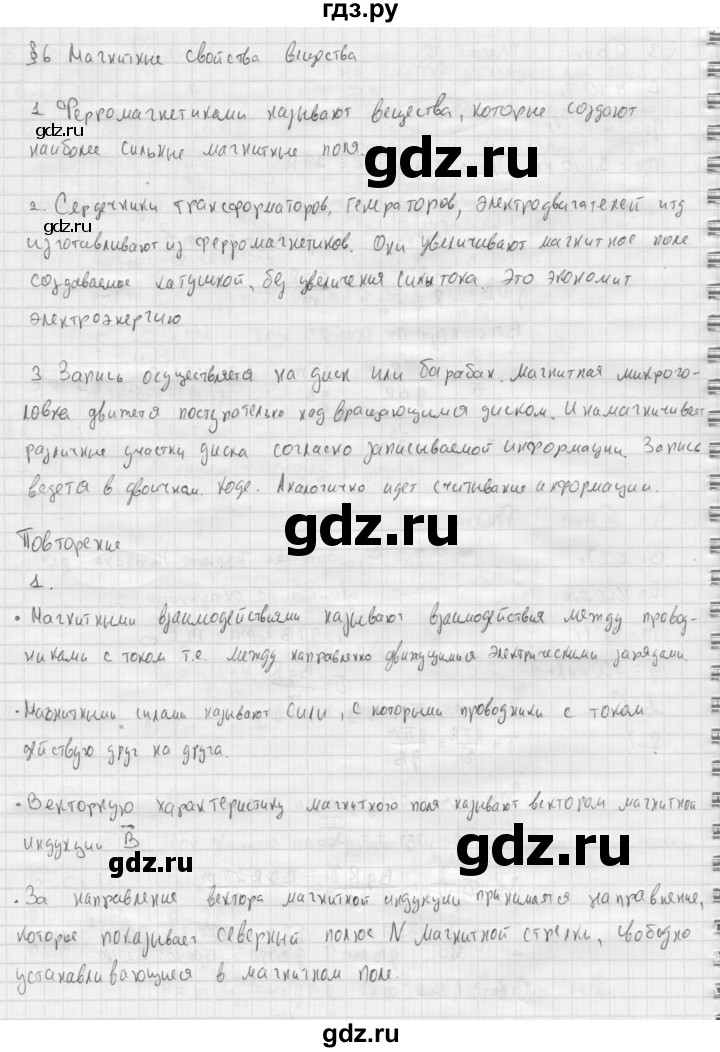 гдз.ру
§6 Магнитные свойства вещества
1. Ферромагнетиками называют вещества, которые создают
gdz.ru
наиболее сильные магнитные поля.
gdz.ru
2. Сердечники трансформаторов, генераторов, электродвигателей итд
изготавливают из ферромагнетиков. Они увеличивают магнитное поле
gdz.ru
создаваемое катушкой, без увеличения силы тока. Это экономит
электроэнергию
3 Запись осуществляется на диск или барабан. Магнитная микрого-
ловка движется поступательно над вращающимся диском. И намагничивает
различные участки диска согласно записываемой информации. Запись
ведется в двоичном коде. Аналогично идет считывание информации.
gdz.ru
Повторение
1.
• Магнитными взаимодействиями называют взаимодействия между провод-
никами с током т.е. между направленно движущимися электрическими зарядами.
• Магнитными силами называют силы, с которыми проводники с током
gdz.ru
действую друг на друга.
• Векторную характеристику магнитного поля называют вектором магнитной
индукции B
gdz.ru
gdz.ru
• За направление вектора магнитной индукции принимался направление,
которое показывает северный полюс N магнитной стрелки, свободно
gdz.ru
устанавливающиеся в магнитном поле.
gdz.ru